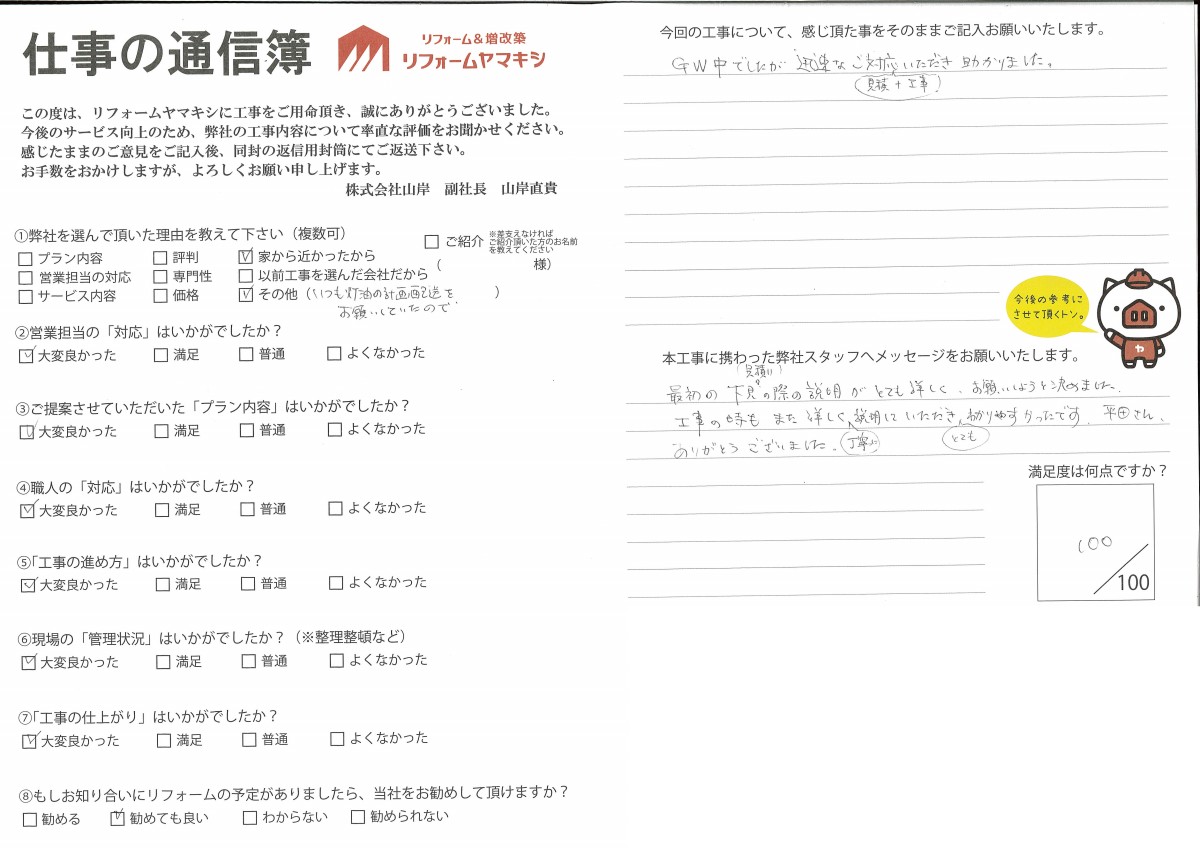 仕事の通信簿
リフォーム&増改築
リフォームヤマキシ
この度は、リフォームヤマキシに工事をご用命頂き、誠にありがとうございました。
今後のサービス向上のため、弊社の工事内容について率直な評価をお聞かせください。
感じたままのご意見をご記入後、同封の返信用封筒にてご返送下さい。
お手数をおかけしますが、よろしくお願い申し上げます。
株式会社山岸 副社長 山岸直貴
①弊社を選んで頂いた理由を教えて下さい（複数可）
□ プラン内容 □ 評判 ☑ 家から近かったから □ ご紹介 ※差支えなければご紹介頂いた方のお名前を教えてください
□ 営業担当の対応 □ 専門性 □ 以前工事を選んだ会社だから （ 様）
□ サービス内容 □ 価格 ☑ その他（いつも灯油の計画配送を ）
お願いしていたので
②営業担当の「対応」はいかがでしたか？
☑ 大変良かった □ 満足 □ 普通 □ よくなかった
③ご提案させていただいた「プラン内容」はいかがでしたか？
☑ 大変良かった □ 満足 □ 普通 □ よくなかった
④職人の「対応」はいかがでしたか？
☑ 大変良かった □ 満足 □ 普通 □ よくなかった
⑤「工事の進め方」はいかがでしたか？
☑ 大変良かった □ 満足 □ 普通 □ よくなかった
⑥現場の「管理状況」はいかがでしたか？（※整理整頓など）
☑ 大変良かった □ 満足 □ 普通 □ よくなかった
⑦「工事の仕上がり」はいかがでしたか？
☑ 大変良かった □ 満足 □ 普通 □ よくなかった
⑧もしお知り合いにリフォームの予定がありましたら、当社をお勧めして頂けますか？
□ 勧める ☑ 勧めても良い □ わからない □ 勧められない
今回の工事について、感じ頂た事をそのままご記入お願いいたします。
GW中でしたが迅速なご対応いただき助かりました。
(見積+工事)
今後の参考に
させて頂くトン。
ヤ
本工事に携わった弊社スタッフへメッセージをお願いいたします。
(見積り)
最初の下見の際の説明がとても詳しく、お願いしようと決めました。
工事の時もまた詳しく説明していただき、わかりやすかったです。平田さん、
ありがとうございました。 丁寧に とても
満足度は何点ですか？
100
/100